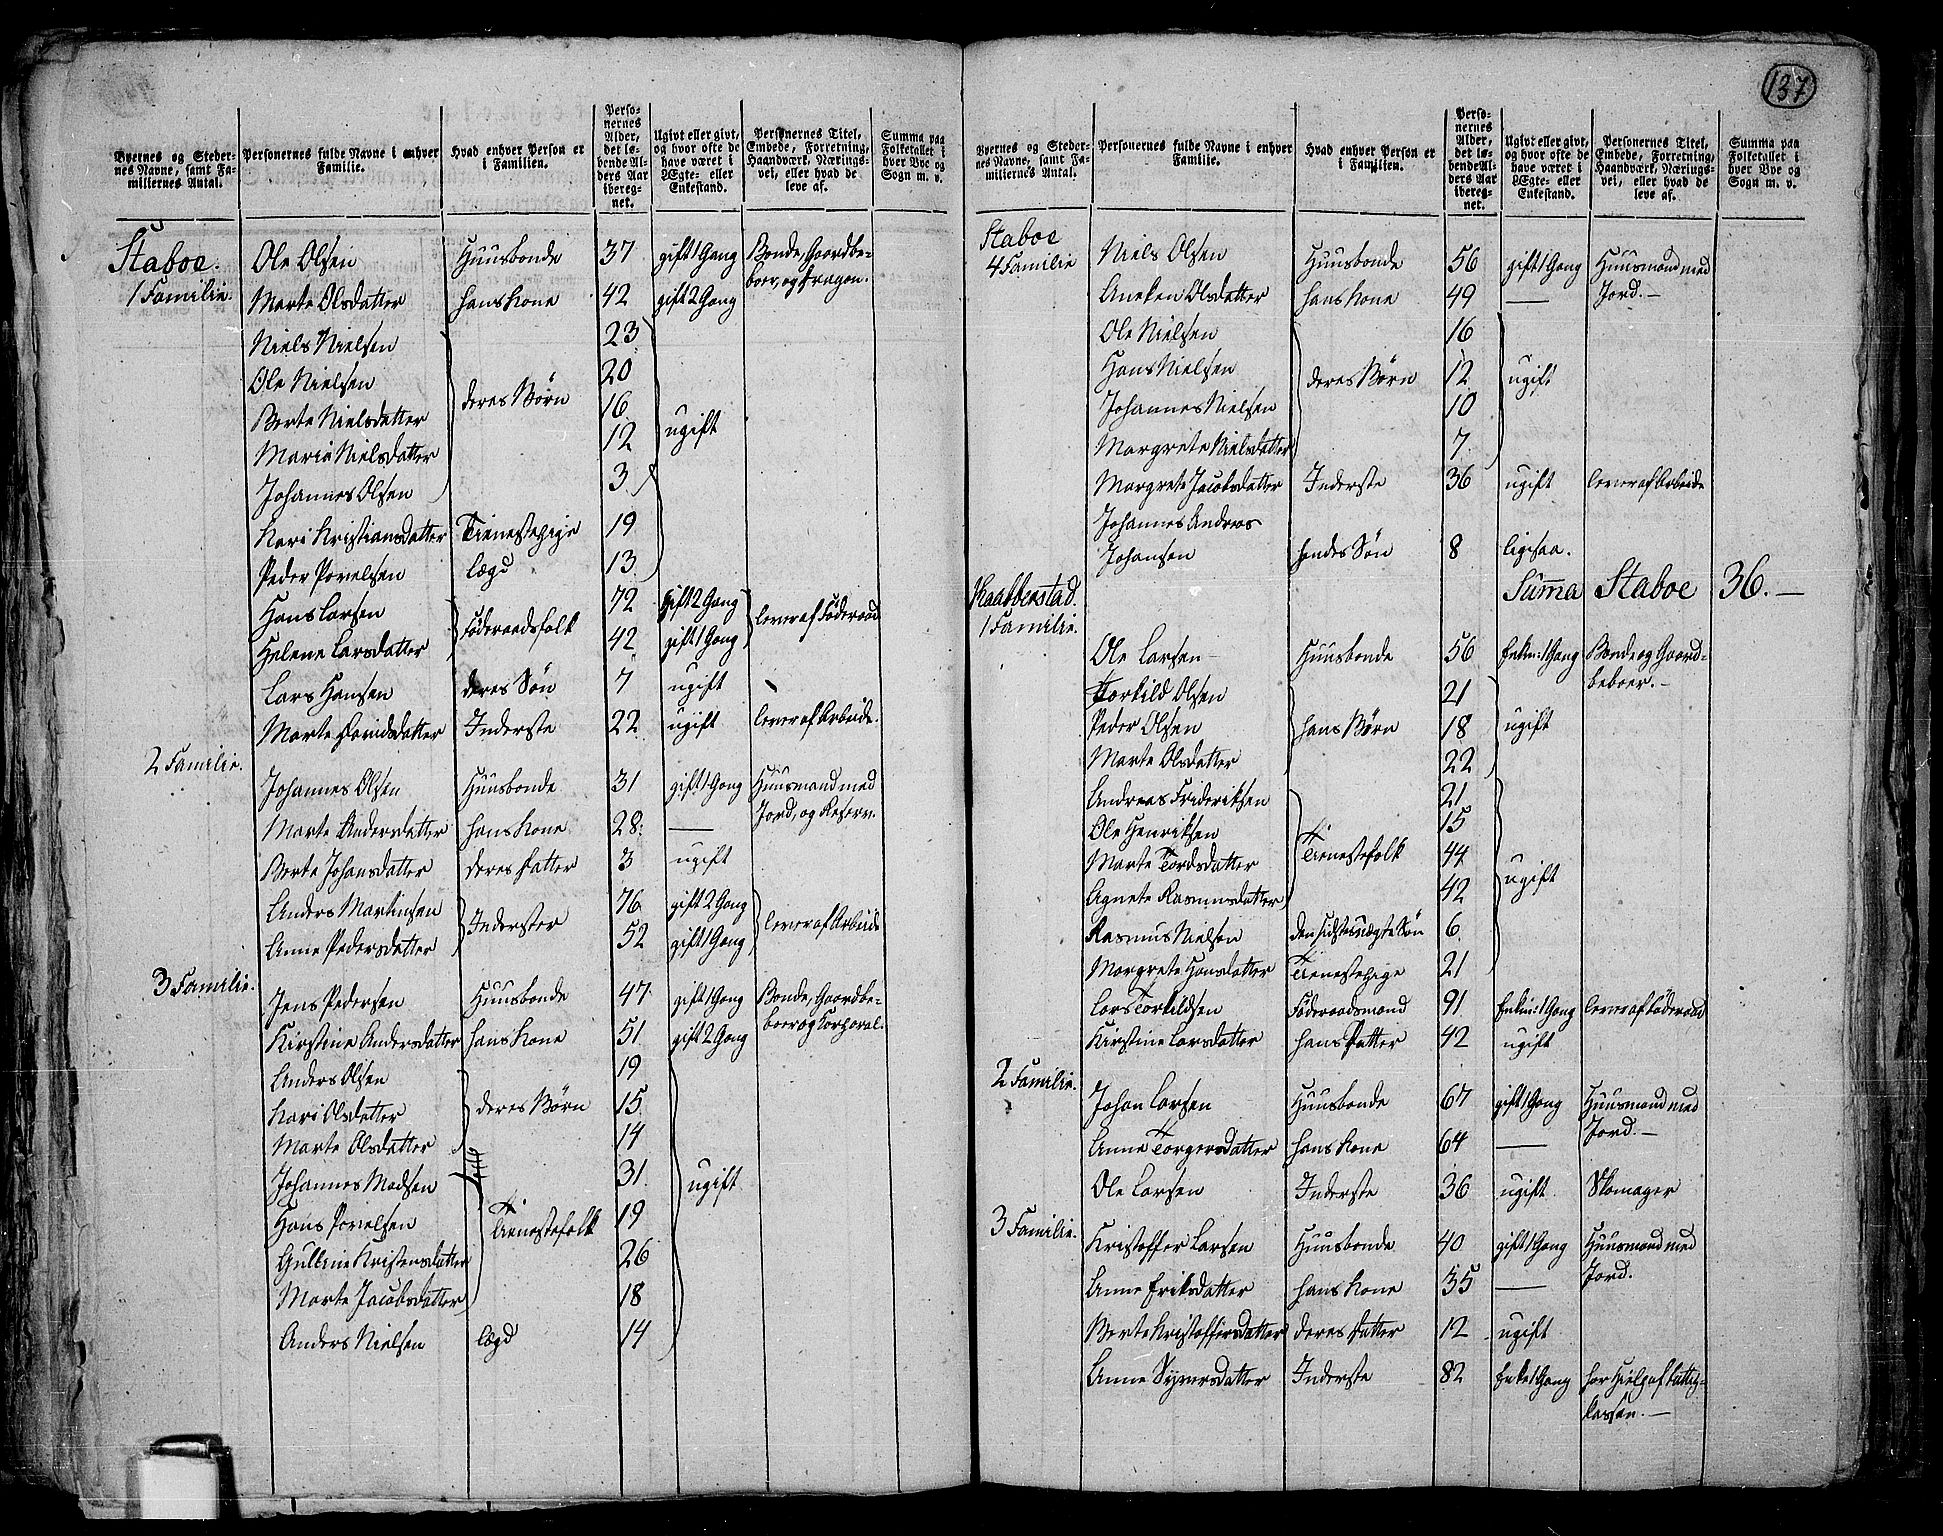 137
Byernes og Steder- Personernes fulde Navne i enhver Hvad enhver Person er Perso- Ugivt eller givt, Personernes Titel, Summa paa
nes Navne, samt Fa- Familie. i Familien. nernes og hvor ofte de Embede, Forretning, Folketallet i
miliernes Antal. Alder, have været i Haandværk, Nærings- hver Bye og
det lø- Ægte- eller vei, eller hvad de Sogn m. v.
bende Al- Enkestand. leve af.
ders Aar
iberegnet.
Staboe. Ole Olsen Huusbonde 37 gift 1 Gang Bonde, Gaardbe-
1 Familie. Marte Olsdatter hans Kone 42 gift 2 Gang boer, og Dragon.
Niels Nielsen 23
Ole Nielsen 20
Berte Nielsdatter deres Børn 16 ugift
Marie Nielsdatter 12
Johannes Olsen 3
Kari Kristiansdatter Tienestepige 19
Peder Povelsen lægd 13
Hans Larsen 72 gift 2 Gang
Helene Larsdatter Føderaadsfolk 42 gift 1 Gang lever af Føderaad
Lars Hansen deres Søn 7 ugift
Marte Davidsdatter Inderste 22 ugift lever af Arbeide.
2 Familie.
Johannes Olsen Huusbonde 31 gift 1 Gang Huusmand med
Marte Andersdatter hans Kone 28 — Jord, og Reserv.
Berte Johansdatter deres Datter 3 ugift
Anders Martinsen 76 gift 2 Gang
Anne Pedersdatter Inderster 52 gift 1 Gang lever af Arbeide
3 Familie.
Jens Pedersen Huusbonde 47 gift 1 Gang Bonde, Gaardbe-
Kirstine Andersdatter hans Kone 51 gift 2 Gang boer og Corporal.
Anders Olsen 19
Kari Olsdatter deres Børn 15
Marte Olsdatter 14
Johannes Madsen 31 ugift
Hans Povelsen Tienestefolk 19
Gulline Kristensdatter 26
Marte Jacobsdatter 18
Anders Nielsen lægd 14
Byernes og Steder- Personernes fulde Navne i enhver Hvad enhver Person er Perso- Ugivt eller givt, Personernes Titel, Summa paa
nes Navne, samt Fa- Familie. i Familien. nernes og hvor ofte de Embede, Forretning, Folketallet i
miliernes Antal. Alder, have været i Haandværk, Nærings- hver Bye og
det lø- Ægte- eller vei, eller hvad de Sogn m. v.
bende Al- Enkestand. leve af.
ders Aar
iberegnet.
Staboe
4 Familie Niels Olsen Huusbonde 56 gift 1 Gang Huusmand med
Aneken Olsdatter hans Kone 49 — Jord. —
Ole Nielsen 16
Hans Nielsen deres Børn 12 ugift
Johannes Nielsen 10
Margrete Nielsdatter 7
Margrete Jacobsdatter Inderste 36 ugift lever af Arbeide
Johannes Andreas
Johansen hendes Søn 8 ligesaa.
Summa Staboe 36. —
Kaabberstad.
1 Familie.
Ole Larsen Huusbonde 56 Enkm: 1 Gang Bonde og Gaard-
Torkild Olsen 21 beboer. —
Peder Olsen hans Børn 18 ugift
Marte Olsdatter 22
Andreas Frideriksen 21
Ole Henriksen 15
Marte Tordsdatter Tienestefolk 44
Agnete Rasmusdatter 42 ugift
Rasmus Nielsen den sidstes uægte Søn 6
Margrete Hansdatter Tienestepige 21
Lars Torkildsen Føderaadsmand 91 Enkm: 1 Gang lever af Føderaad
Kirstine Larsdatter hans Datter 42 ugift
2 Familie.
Johan Larsen Huusbonde 67 gift 1 Gang Huusmand med
Anne Torgersdatter hans Kone 64 — Jord. —
Ole Larsen Inderste 36 ugift Skomager
3 Familie.
Kristoffer Larsen Huusbonde 40 gift 1 Gang Huusmand med
Anne Eriksdatter hans Kone 35 — Jord.
Berte Kristoffersdatter deres Datter 12 ugift
Anne Syversdatter Inderste 82 Enke 1 Gang har Hielp af Fattig-
kassen. —